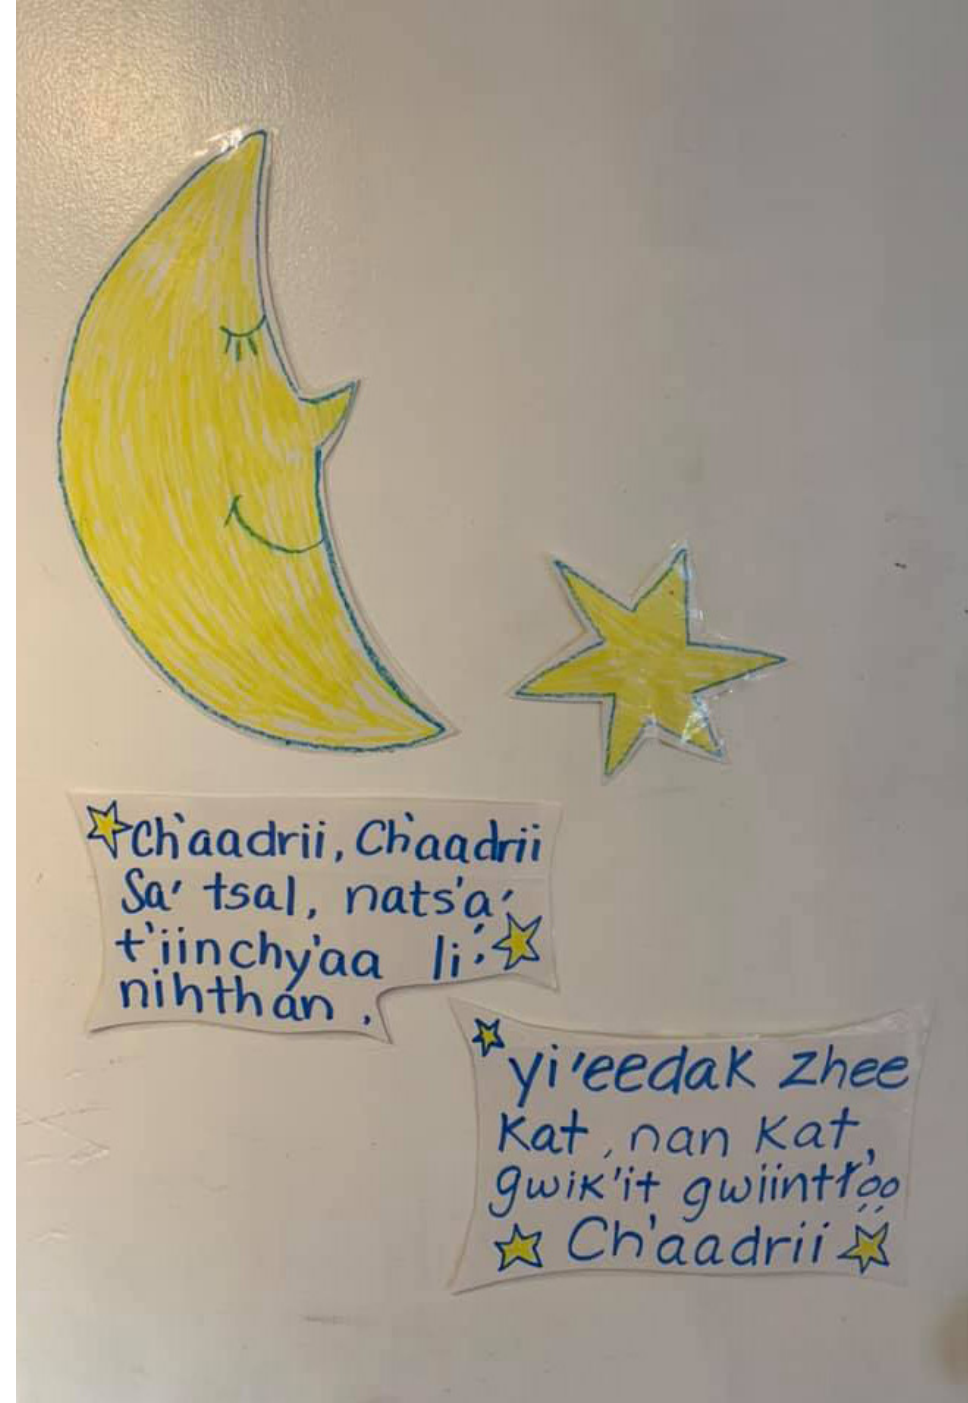 Ch'aadrii, Ch'aadrii
Sa' tsal, nats'a'
t'iinchy'aa li'
nihthan.
yi'eedak zhee
Kat, nan Kat,
gwik'it gwiintł'oo
Ch'aadrii